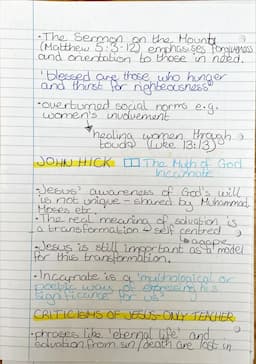 •The Sermon on the Mount
(Matthew 5:3-12) emphasises forgiveness
and orientation to those in need.
'blessed are those who hunger
and thirst for righteousness'
•overturned social norms e.g.
women's involvement
healing women through
touch (Luke 13:13)
JOHN HICK The Myth of God
Incarnate
•Jesus' awareness of God's will
is not unique - shared by Muhammad,
Moses etc.
•The real meaning of salvation is
a transformation self centred
agape
•Jesus is still important as a model
for this transformation.
•Incarnate is a 'mythological or
poetic way of expressing his
significance for us'
CRITICISMS OF JESUS-ONLY TEACHER
•phrases like 'eternal life' and
salvation from sin/death are lost in